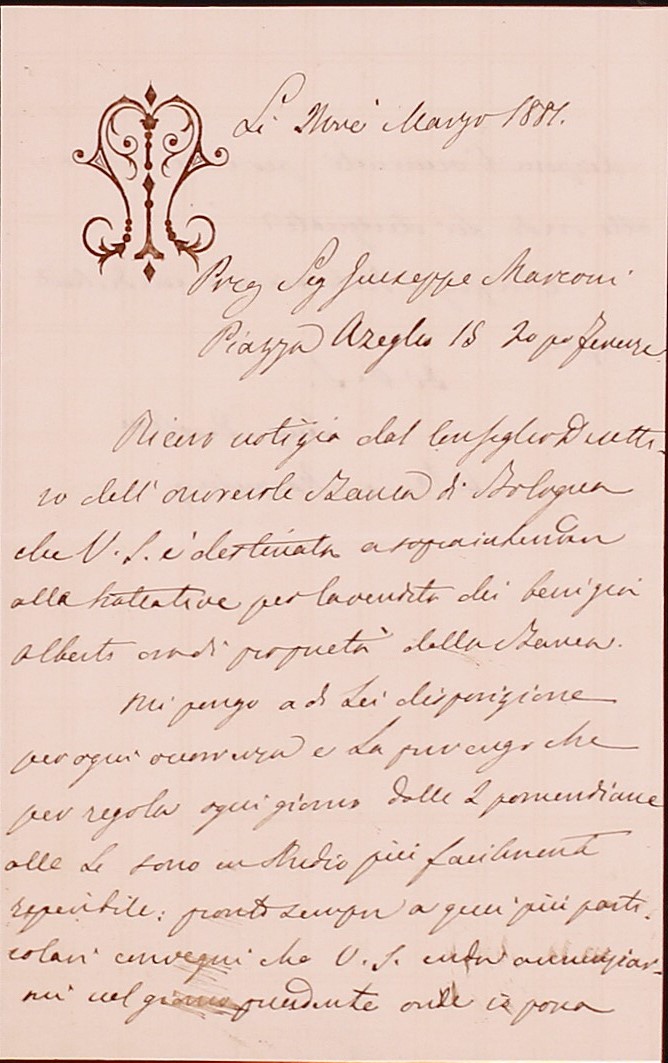 Li Nove Marzo 1881.
Preg Sig Giuseppe Marconi
Piazza Azeglio 15 2o po Firenze
Ricevo notizia dal Consiglio Diretti-
vo dell'onorevole Banca di Bologna
che V. S. è destinata a sopraintender
alla trattative per la vendita dei beni già
Alberti ora di proprietà della Banca.
Mi pongo a di Lei disposizione
per ogni occorrenza e La prevengo che
per regola ogni giorno dalle 2 pomeridiane
alle sono in Studio più facilmente
reperibile; pronto sempre a quei più parti-
colari convegni che V. S. annunziar-
mi nel giorno precedente onde io possa